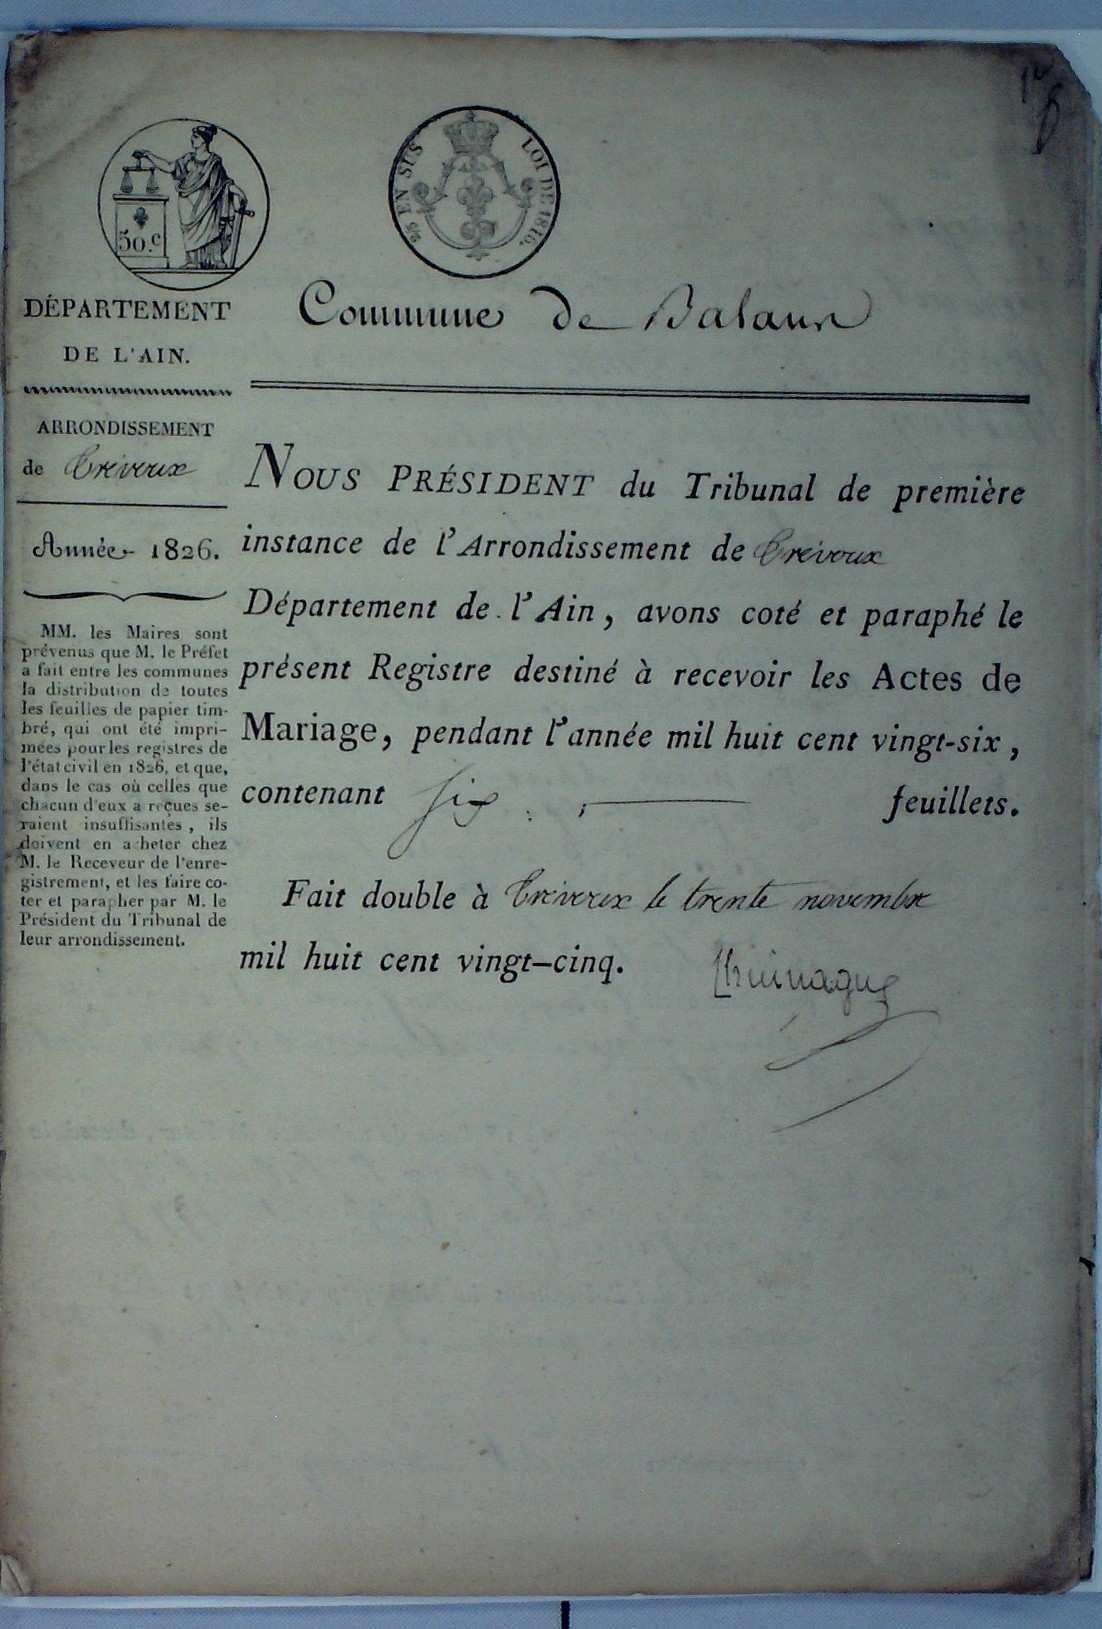 50.c
EN SUS
LOI DE 1816.
DÉPARTEMENT
DE L'AIN.
ARRONDISSEMENT
de Trévoux
Année 1826.
MM. les Maires sont
prévenus que M. le Préfet
a fait entre les communes
la distribution de toutes
les feuilles de papier tim-
bré, qui ont été impri-
mées pour les registres de
l'état civil en 1826, et que,
dans le cas où celles que
chacun d'eux a reçues se-
raient insuffisantes, ils
doivent en acheter chez
M. le Receveur de l'enre-
gistrement, et les faire co-
ter et parapher par M. le
Président du Tribunal de
leur arrondissement.
Commune de Balan
NOUS PRÉSIDENT du Tribunal de première
instance de l'Arrondissement de Trévoux
Département de l'Ain, avons coté et paraphé le
présent Registre destiné à recevoir les Actes de
Mariage, pendant l'année mil huit cent vingt-six,
contenant six feuillets.
Fait double à Trévoux le trente novembre
mil huit cent vingt-cinq.